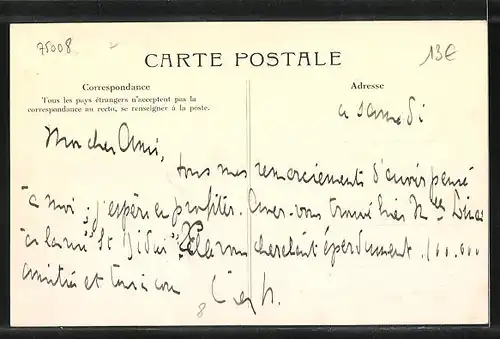 75008
13€
CARTE POSTALE
Correspondance
Tous les pays étrangers n'acceptent pas la
correspondance au recto, se renseigner à la poste.
Adresse
a samedi
Mon cher Ami,
tous mes remerciements d'avoir pensé
à moi ; j'espère en profiter. Avez-vous trouvé hier
"à la rue" St Didier" cherchant éperdument. 100.000
amitiés et
8